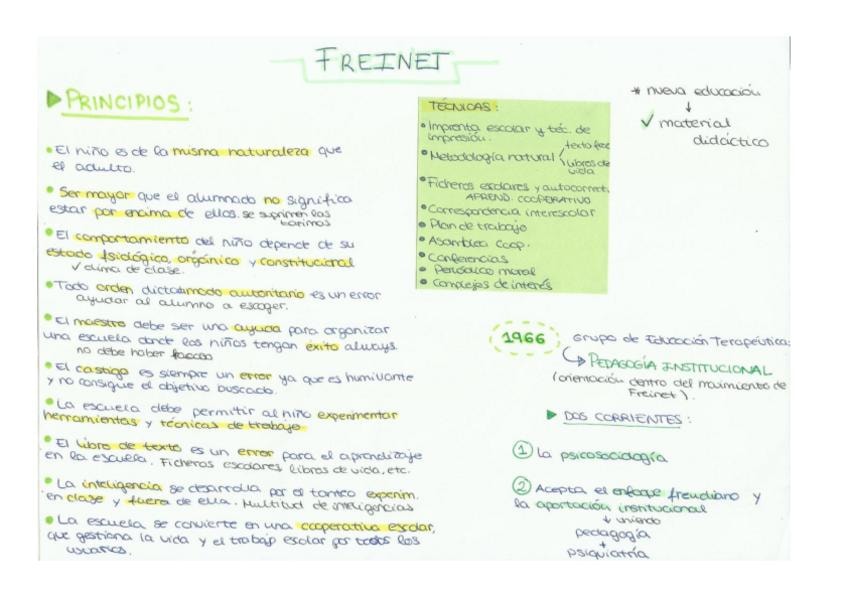 FREINET
PRINCIPIOS:
• El niño es de la misma naturaleza que
el adulto.
• Ser mayor que el alumnado no significa
estar por encima de ellos. se suprimen las
tarimas
• El comportamiento del niño depende de su
estado fisiológico, orgánico y constitucional
✓ clima de clase.
• Todo orden dictado modo autoritario es un error
ayudar al alumno a escoger.
• El maestro debe ser una ayuda para organizar
una escuela donde los niños tengan éxito always.
no debe haber fracaso
• El castigo es siempre un error ya que es humillante
y no consigue el objetivo buscado.
• La escuela debe permitir al niño experimentar
herramientas y técnicas de trabajo
• El libro de texto es un error para el aprendizaje
en la escuela. Ficheros escolares libros de vida, etc.
• La inteligencia se desarrolla por el tanteo experim.
en clase y fuera de ella. Multitud de inteligencias
• La escuela se convierte en una cooperativa escolar,
que gestiona la vida y el trabajo escolar por todos los
usuarios.
TÉCNICAS:
• Imprenta escolar y téc. de
impresión.
• Metodología natural texto free
libros de
vida
• Ficheros escolares y autocorrect.
APREND. COOPERATIVO
• Correspondencia interescolar
• Plan de trabajo
• Asamblea Coop.
• Conferencias
• Periódico mural
• Complejos de interés
* nueva educación
↓
✓ material
didáctico
1966 Grupo de Educación Terapéutica:
PEDAGOGÍA INSTITUCIONAL
(orientación dentro del movimiento de
Freinet).
DOS CORRIENTES:
1 La psicosociología
2 Acepta el enfoque freudiano y
la aportación institucional
↓ uniendo
pedagogía
+
psiquiatría